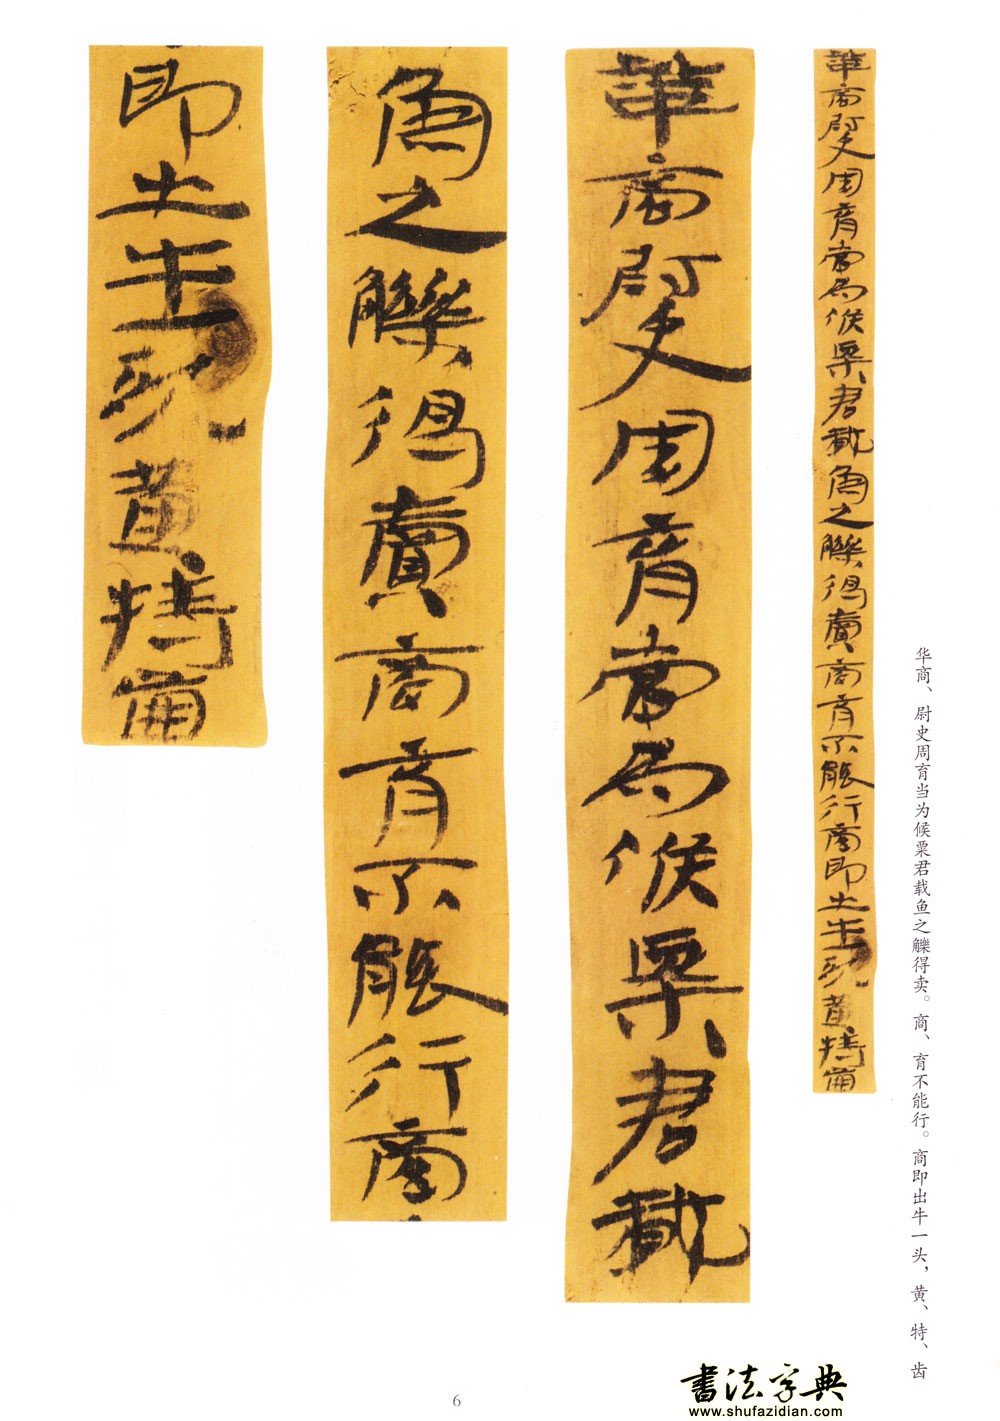 華商尉史周育當為候粟君載魚之觻得賣商育不能行商即出牛一頭黃特齒
華商尉史周育當為候粟君載
魚之觻得賣商育不能行商
即出牛一頭黃特齒
华商、尉史周育当为候粟君载鱼之觻得卖。商、育不能行。商即出牛一头，黄、特、齿
6
书法字典
www.shufazidian.com